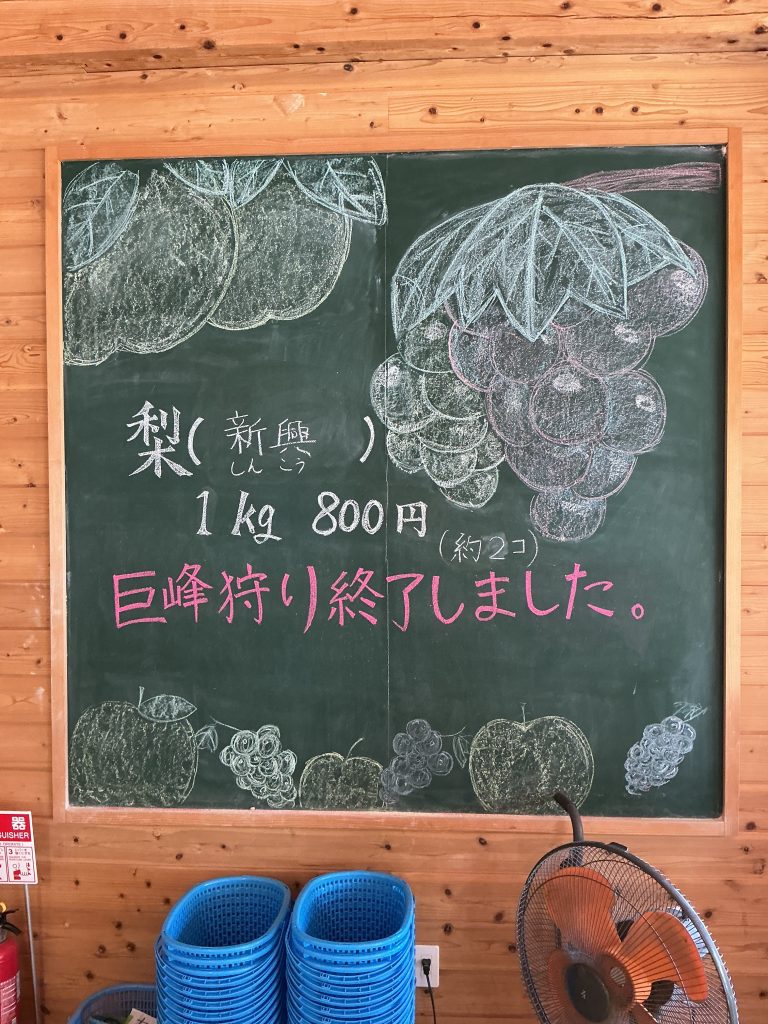 梨(新興)
しんこう
1kg 800円
(約2コ)
巨峰狩り終了しました。
器
GUISHER